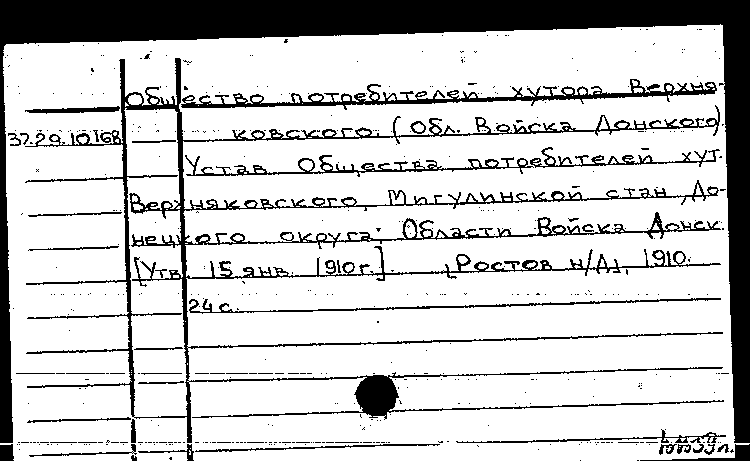 Общество потребителей хутора Верхня-
37.20.10.168
ковского. (Обл. Войска Донского)
Устав Общества потребителей хут.
Верхняковского, Мигулинской стан, До-
нецкого округа; Области Войска Донск.
[Утв. 15 янв. 1910 г.]. [Ростов н/Д], 1910.
24 с.